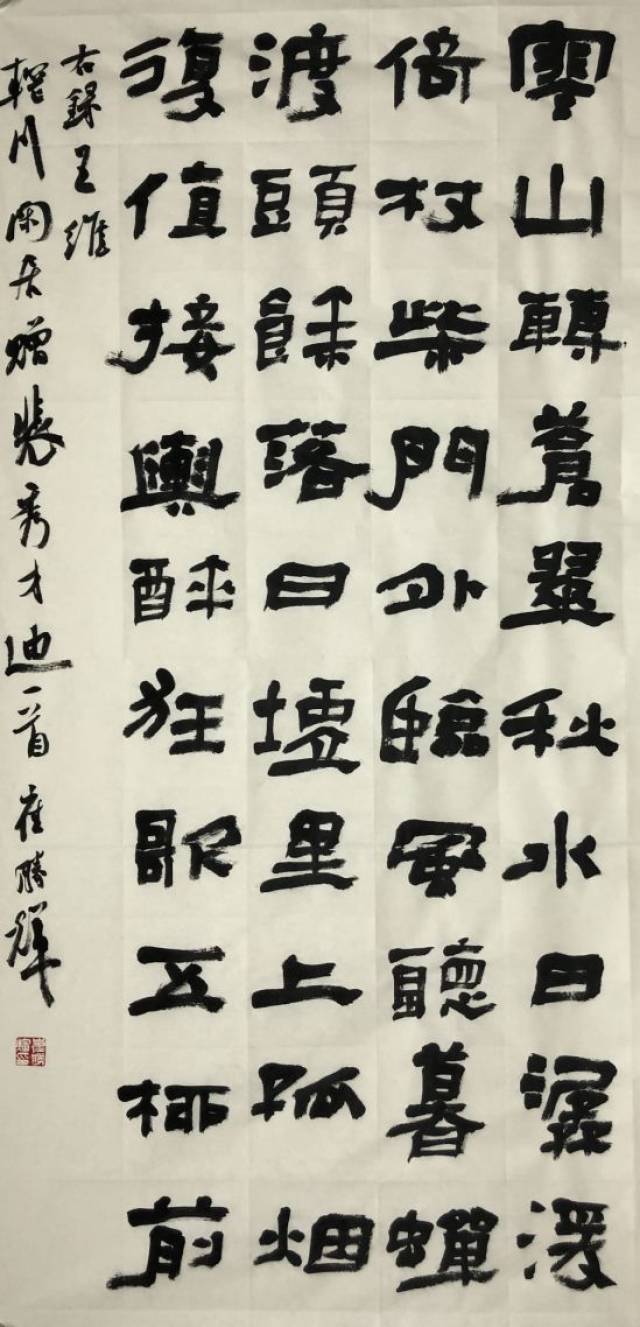 寒山轉蒼翠秋水日潺湲
倚杖柴門外臨風聽暮蟬
渡頭餘落日墟里上孤烟
復值接輿醉狂歌五柳前
右錄王維
輞川閑居贈裴秀才迪一首 崔勝輝